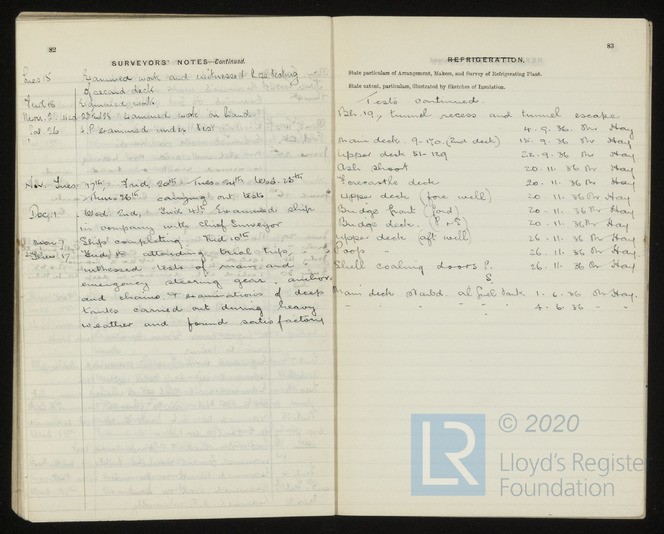 82
SURVEYORS' NOTES—Continued.
Tues 15 Examined work and witnessed hose testing
of second deck
Examined work
Examined work in hand
Sat 26 examined under test
Nov. Tues 17th, Frid 20th, Tues 24th, Wed. 25th
Thurs 26th carrying out tests
Dec. Wed 2nd, Frid 4th Examined ship
in company with Chief Surveyor
Ship completing. 10th
attending trial trip,
witnessed tests of main and
emergency steering gear, anchors
and chains & examinations of deep
tanks carried out during heavy
weather and found satisfactory
83
REFRIGERATION.
State particulars of Arrangement, Makers, and Survey of Refrigerating Plant.
State extent, particulars, illustrated by Sketches of Insulation.
Tests continued.
Bh. 19, tunnel recess and tunnel escape
4. 9. 36. Hay
Main deck (2nd deck) 9. 36. Hay
Upper deck 51-129 22. 9. 36 Hay
Ash shoot 20. 11. 36 Hay
Forecastle deck 20. 11. 36 Hay
Upper deck (fore well) 20. 11. 36 Hay
Bridge front (ford) 20. 11. 36 Hay
Bridge deck (P & S) 20. 11. 36 Hay
Upper deck (aft well) 26. 11. 36 Hay
Poop 26. 11. 36 Hay
Shell coaling doors P. 26. 11. 36 Hay
S.
Main deck starbd. oil fuel tank 1. 6. 36 Hay.
4. 6. 36
© 2020
LR
Lloyd's Register
Foundation